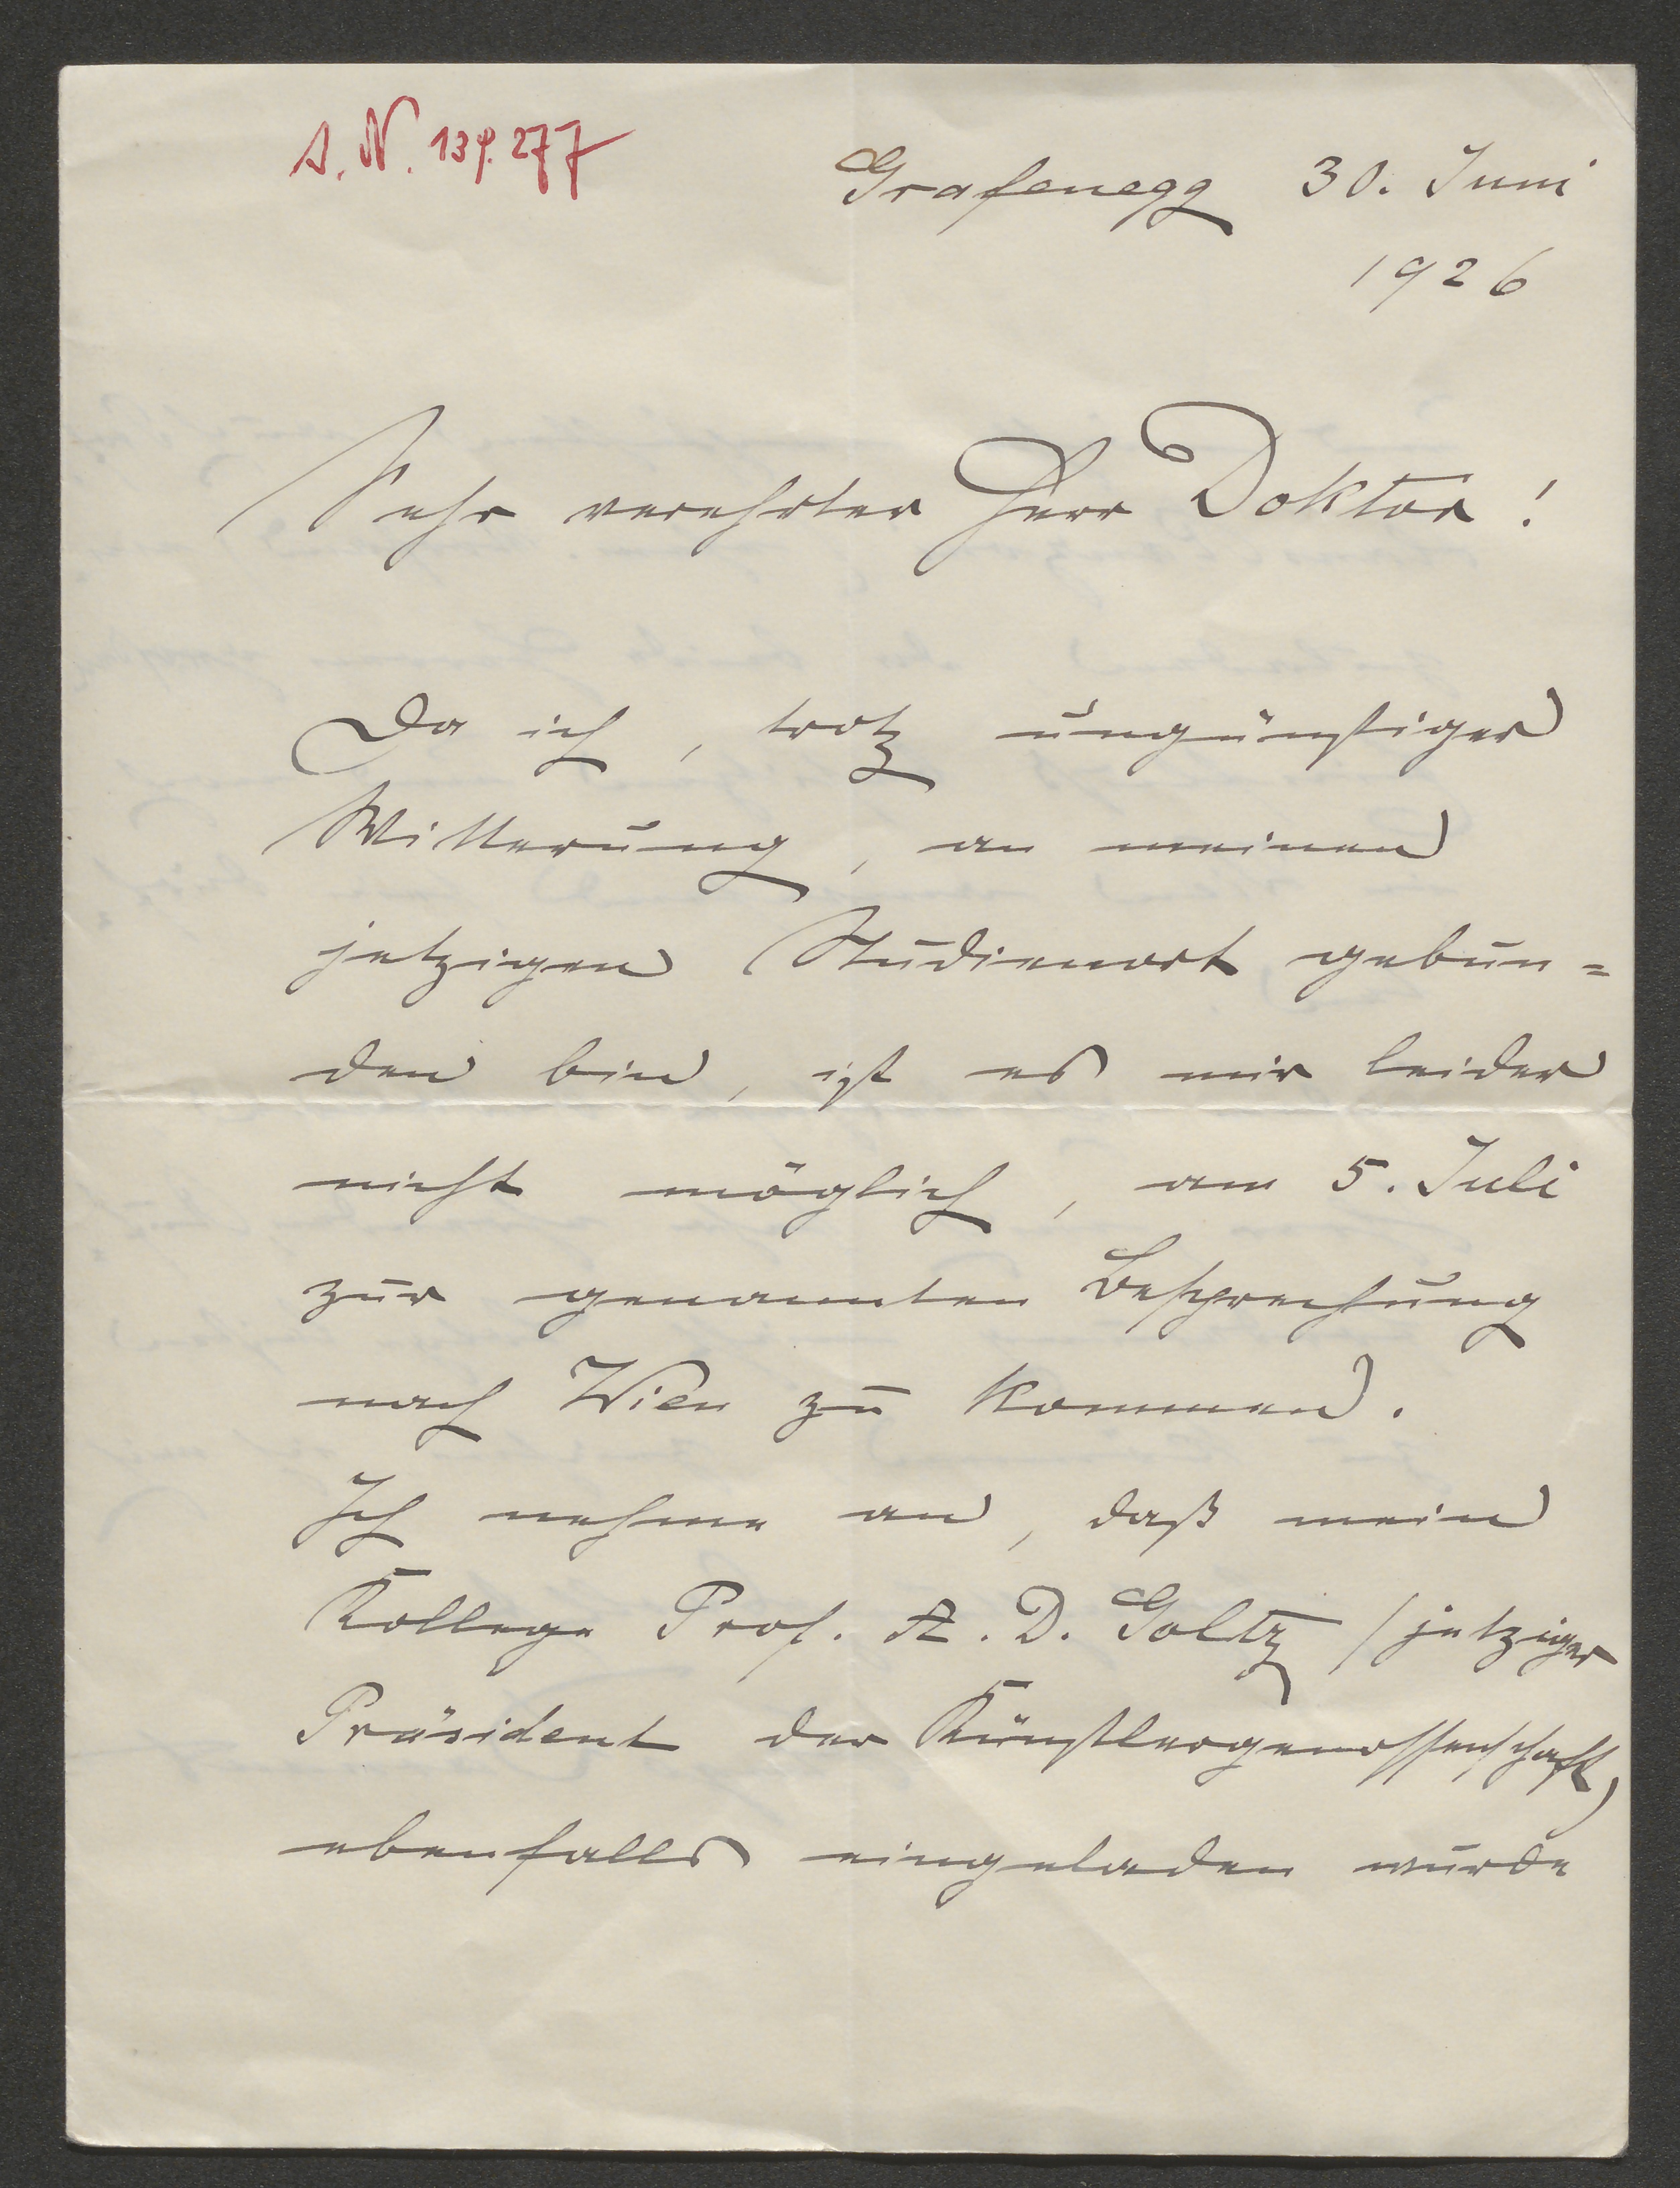 J. N. 139.277
Grafenegg 30. Juni
1926
Sehr verehrter Herr Doktor!
Da ich, trotz ungünstiger
Witterung, an meinen
jetzigen Studienort gebun=
den bin, ist es mir leider
nicht möglich, am 5. Juli
zur genannten Besprechung
nach Wien zu kommen.
Ich nehme an, daß mein
Kollege Prof. A. D. Goltz /jetziger
Präsident der Künstlergenossenschaft)
ebenfalls eingeladen wurde